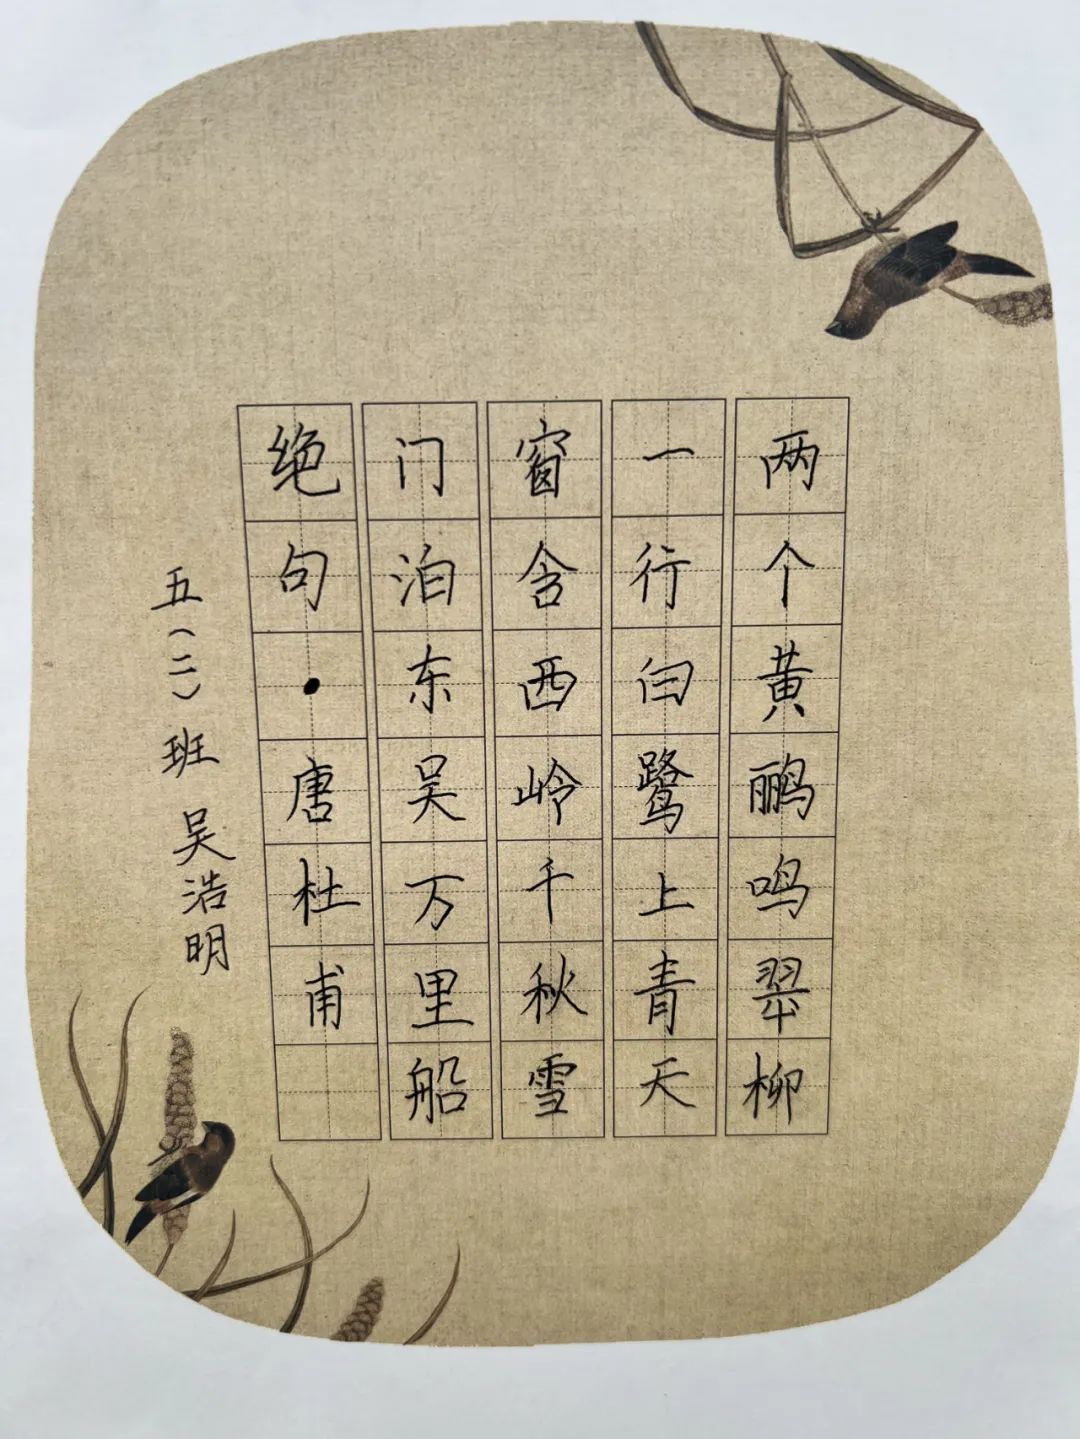 两个黄鹂鸣翠柳
一行白鹭上青天
窗含西岭千秋雪
门泊东吴万里船
绝句·唐杜甫
五(二)班 吴浩明